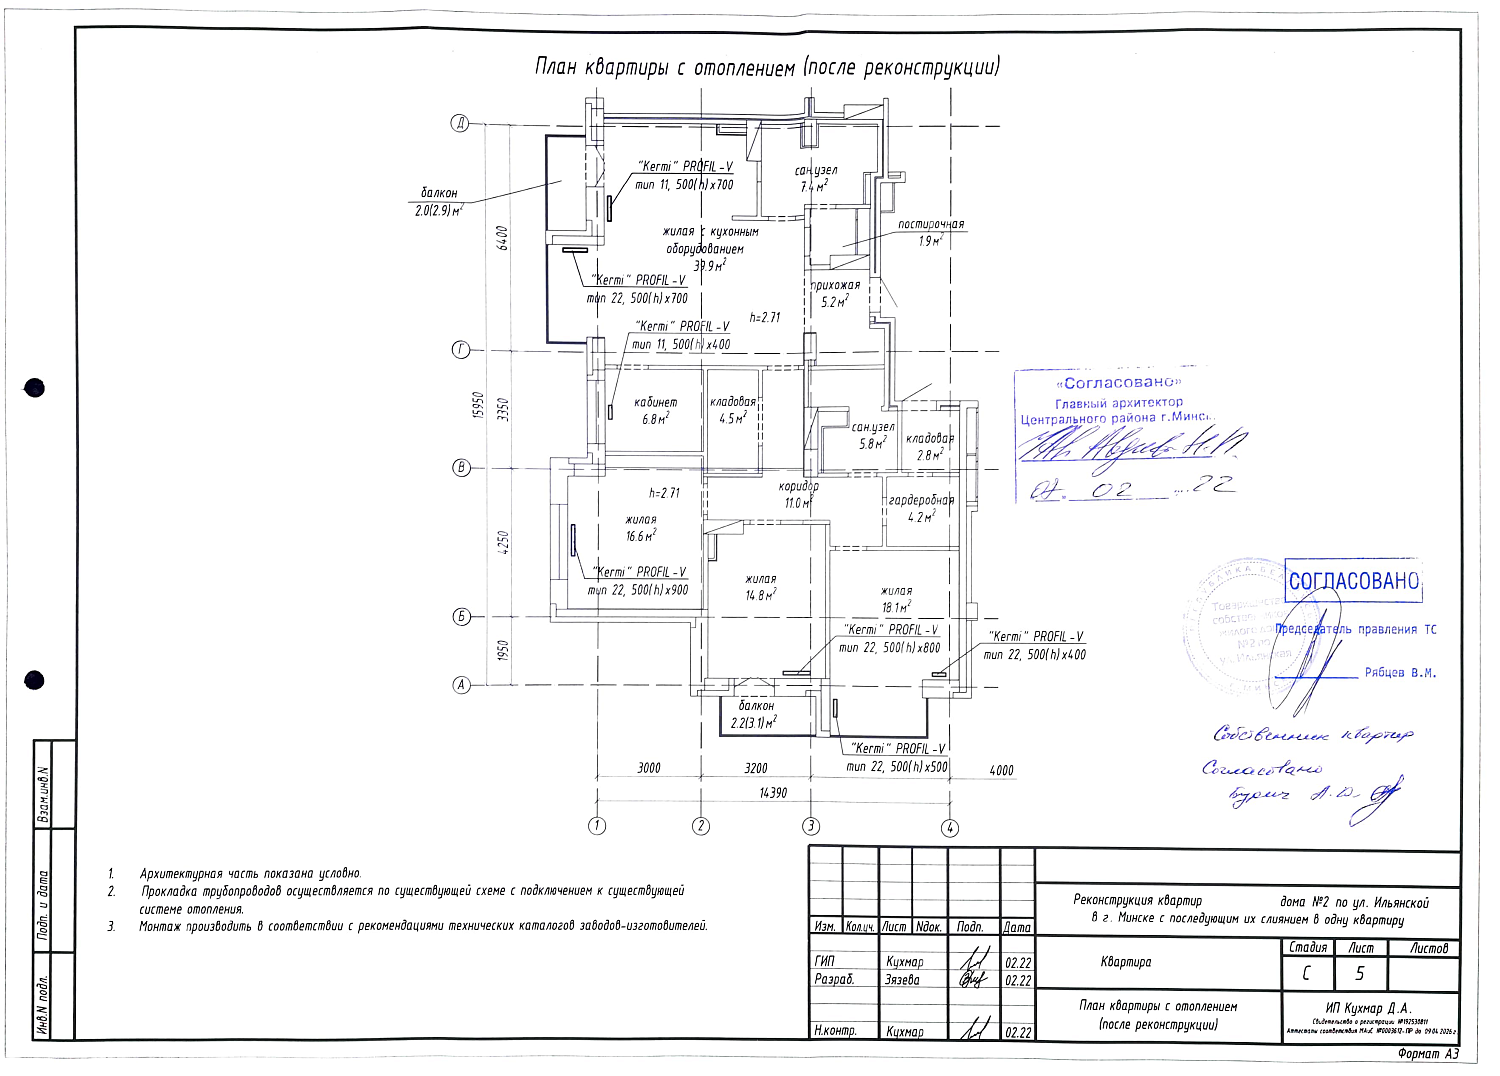 План квартиры с отоплением (после реконструкции)
Д
"Kermi" PROFIL-V
тип 11, 500(h)x700
сан.узел
7.4 м²
балкон
2.0(2.9) м²
постирочная
1.9 м²
6400
жилая с кухонным
оборудованием
39.9 м²
"Kermi" PROFIL-V
тип 22, 500(h)x700
прихожая
5.2 м²
h=2.71
"Kermi" PROFIL-V
тип 11, 500(h)x400
Г
«Согласовано»
Главный архитектор
Центрального района г.Минск
02 22
15950
3350
кабинет
6.8 м²
кладовая
4.5 м²
сан.узел
5.8 м²
кладовая
2.8 м²
В
h=2.71
коридор
11.0 м²
гардеробная
4.2 м²
жилая
16.6 м²
4250
"Kermi" PROFIL-V
тип 22, 500(h)x900
жилая
14.8 м²
жилая
18.1 м²
СОГЛАСОВАНО
Председатель правления ТС
Рябцев В.М.
Б
1950
"Kermi" PROFIL-V
тип 22, 500(h)x800
"Kermi" PROFIL-V
тип 22, 500(h)x400
А
балкон
2.2(3.1) м²
"Kermi" PROFIL-V
тип 22, 500(h)x500
Собственник квартир
Согласовано
3000
3200
4000
14390
1
2
3
4
1. Архитектурная часть показана условно.
2. Прокладка трубопроводов осуществляется по существующей схеме с подключением к существующей
системе отопления.
3. Монтаж производить в соответствии с рекомендациями технических каталогов заводов-изготовителей.
Взам.инв.N
Подп. и дата
Инв.N подл.
Изм. Кол.уч. Лист Nдок. Подп. Дата
ГИП Кухмар 02.22
Разраб. Зязева 02.22
Н.контр. Кухмар 02.22
Реконструкция квартир дома №2 по ул. Ильянской
в г. Минске с последующим их слиянием в одну квартиру
Квартира
Стадия Лист Листов
С 5
План квартиры с отоплением
(после реконструкции)
ИП Кухмар Д.А.
Свидетельство о регистрации №192530811
Аттестаты соответствия МАиС №0003612-ПР до 09.04.2026 г.
Формат А3